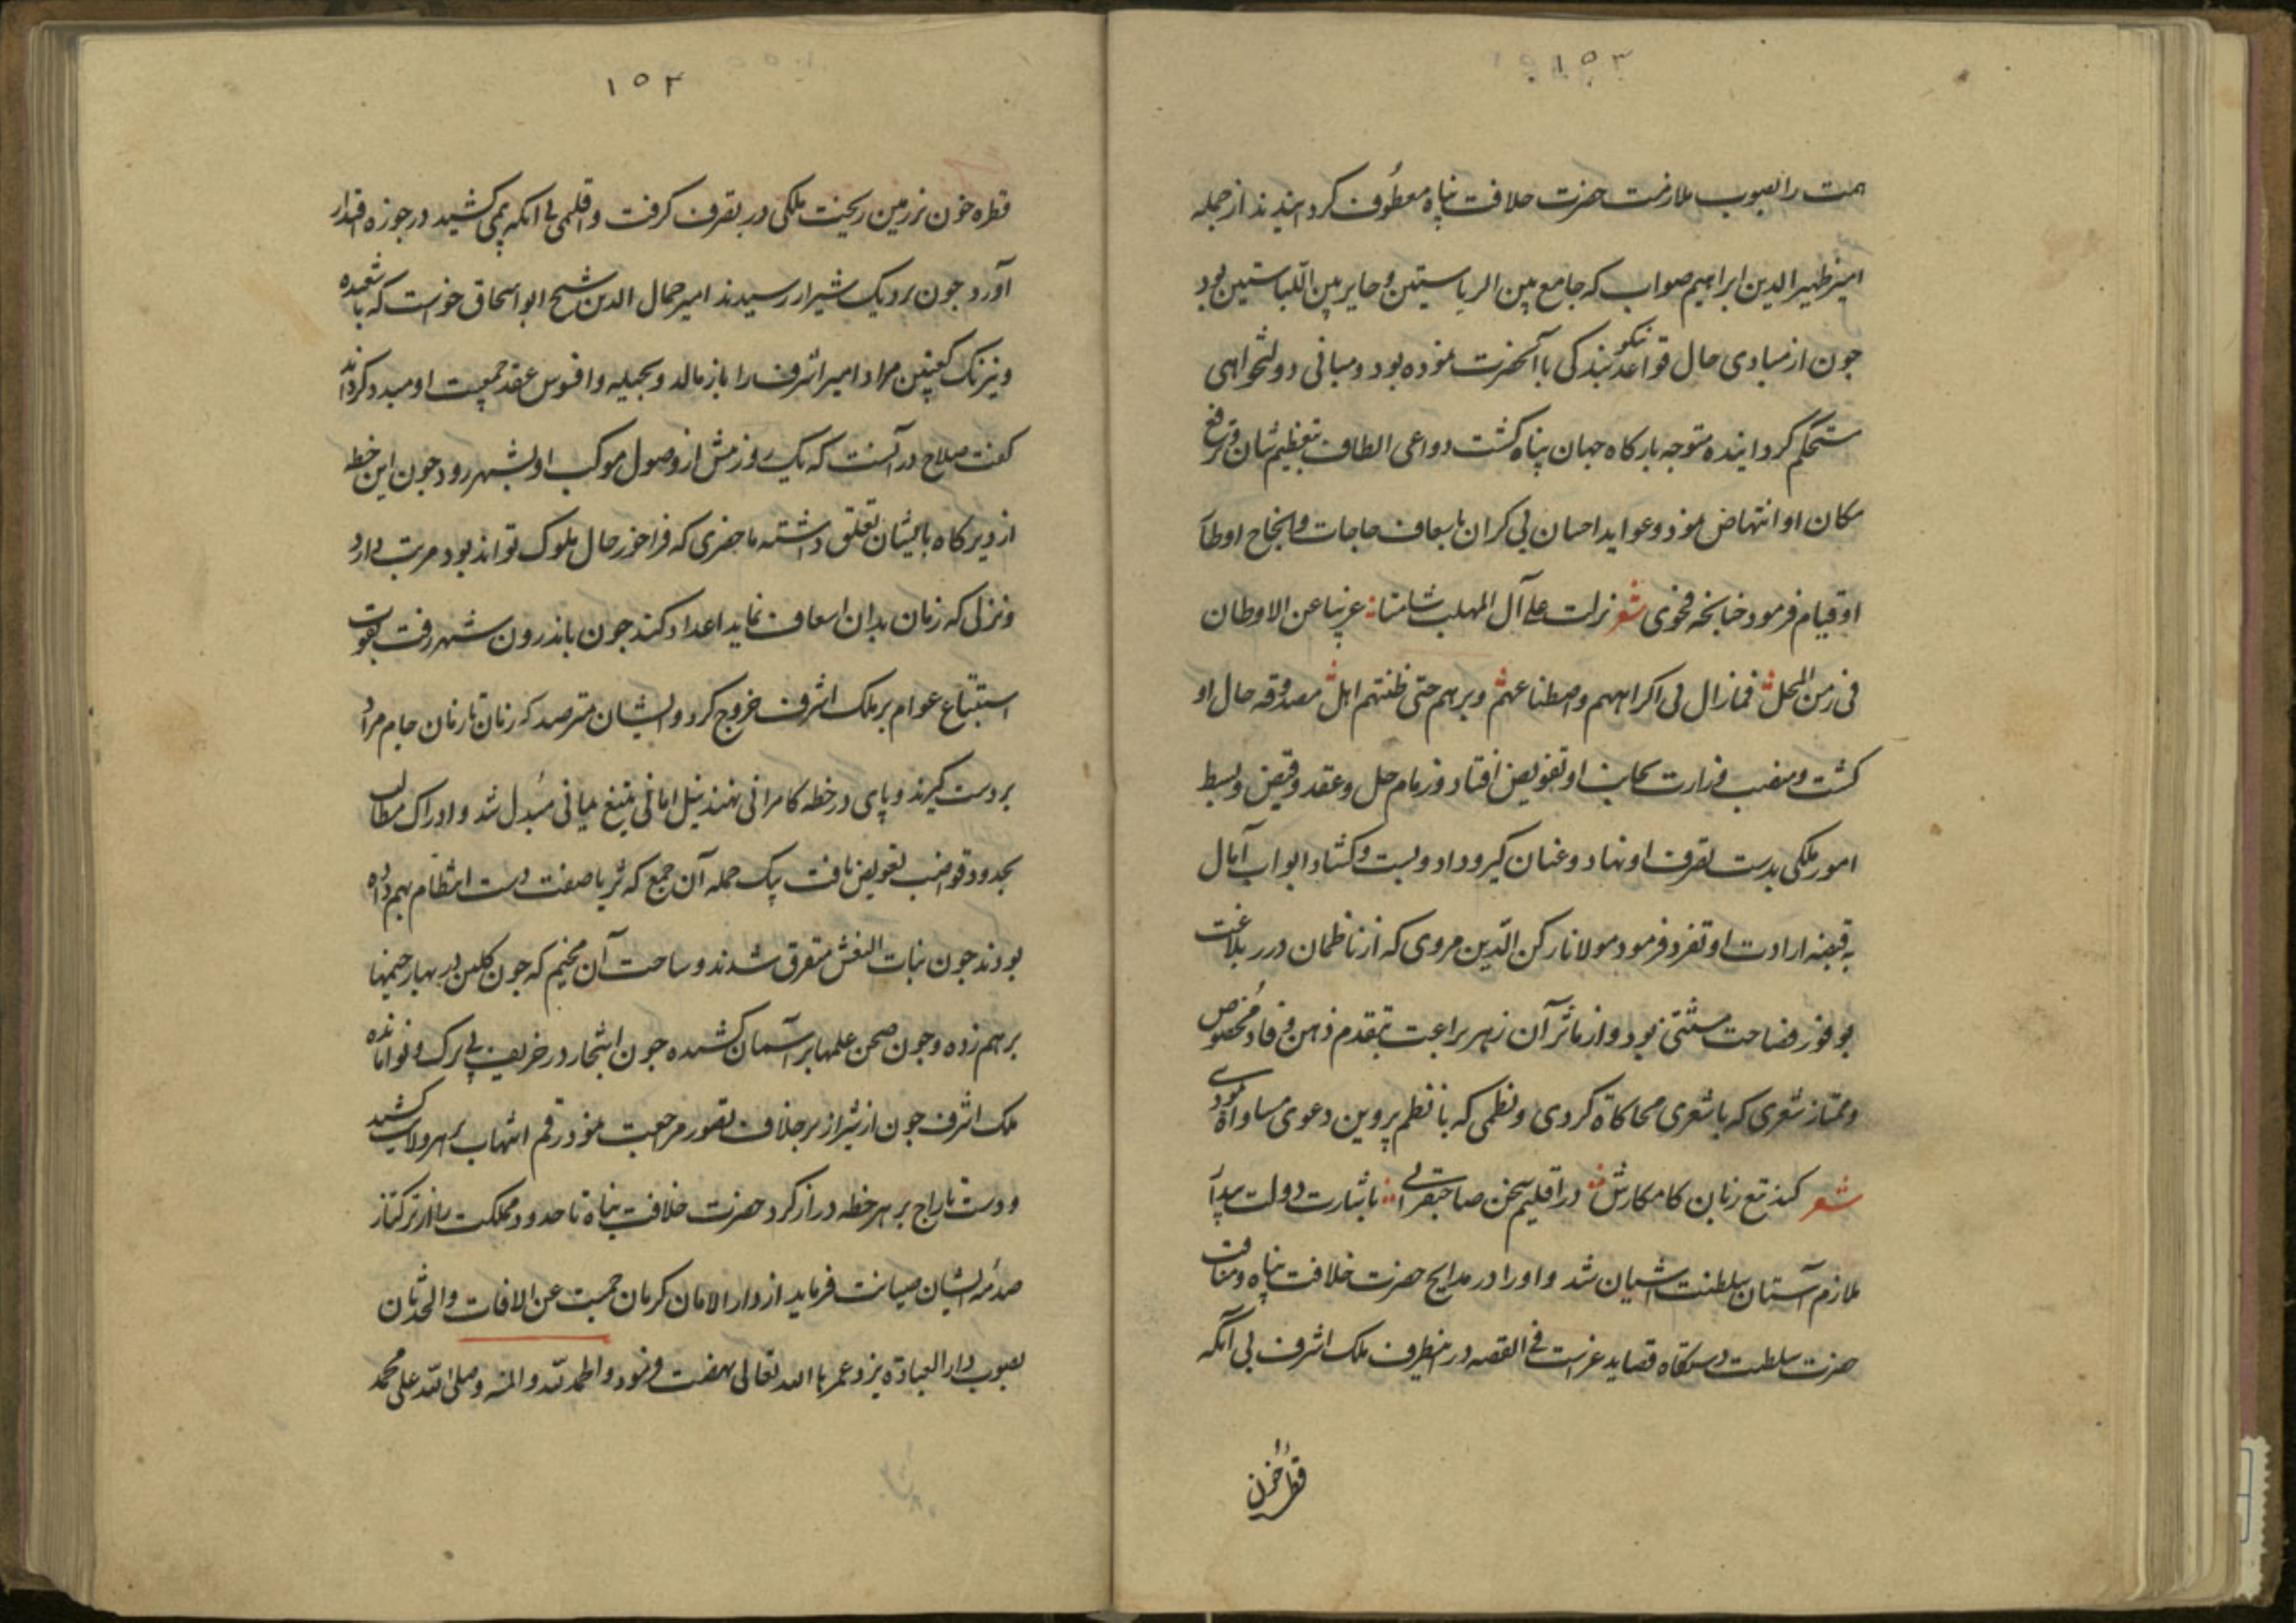 ۱۵۳
همت را بصوب ملازمت حضرت خلافت پناه معطوف کردانیدند از جمله
امیر ظهیر الدین ابراهیم صواب که جامع بین الریاستین و حایز بین اللباستین بود
جون از مبادی حال قواعد نیکو بندکی با آنحضرت نموده بود و مبانی دولتخواهی
مستحکم کردانیده متوجه بارکاه جهان پناه کشت دواعی الطاف بتعظیم شان و ترفیع
مکان او انتهاض نمود و عواید احسان بی کران باسعاف حاجات و انجاح اوطار
او قیام فرمود جنانجه فحوی شعر نزلت علی آل المهلب شاتیا غریبا عن الاوطان
فی زمن المحل فمازال بی اکرامهم واصطناعهم وبرهم حتی ظننتهم اهل مصدوقه حال او
کشت و منصب وزارت بجانب او تفویض افتاد و زمام حل و عقد و قبض و بسط
امور ملکی بدست تصرف او نهاد و عنان کیر و داد و بست و کشاد ابواب آمال
به قبضه ارادت او تفرد فرمود مولانا رکن الدین هروی که از ناظمان درر بلاغت
بوفور فصاحت مستثنی بود و از ماثر آن زهر براعت بتقدم ذهن وقاد مخصوص
و ممتاز شعری که با شعری محاکاة کردی و نظمی که با نظم پروین دعوی مساواة نمودی
شعر کند تیغ زبان کامکارش در اقلیم سخن صاحبقرانی باشارت دولت بیدار
ملازم آستان سلطنت آشیان شد و او را در مدایح حضرت خلافت پناه و مناقب
حضرت سلطنت دستکاه قصاید غراست فی القصه در انطرف ملک اشرف بی آنکه
قطره خون
۱۵۴
قطره خون بر زمین ریخت ملکی در تصرف کرفت و اقلیمی بی انکه پمی کشید در حوزه اقتدار
آورد جون بردیک شیراز رسیدند امیر جمال الدین شیخ ابو اسحاق خواست که با شعبده
و نیرنک کعبتین مراد امیر اشرف را باز مالد و بحیله و افسوس عقد جمعیت او مبدد کرداند
کفت صلاح در آنست که یک روز پیش از وصول موکب او بشهر رود جون این خطه
از دیرکاه بایشان تعلق داشته ماحضری که فراخور حال ملوک تواند بود مرتب دارد
و نزلی که زمان بدان اسعاف نماید اعداد کند جون باندرون شهر رفت بقوت
استتباع عوام بر ملک اشرف خروج کرد و ایشان مترصد که زمان تا زمان جام مراد
بر دست کیرند و پای در خطه کامرانی نهند نیل امانی بتیغ یمانی مبدل شد و ادراک مطالب
بحدود قواضب تعویض یافت بیک حمله آن جمع که ثریا صفت دست انتظام بهم داده
بودند جون بنات النعش متفرق شدند و ساحت آن مخیم که جون کلبن در بهار خیمها
برهم زده و جون صحن علمها بر آسمان کشیده جون اشجار در خریف بی برک و نوا مانده
ملک اشرف جون از شیراز بر خلاف تصور مراجعت نمود رقم انتهاب بر هر ولایت کشید
و دست تاراج بر هر خطه دراز کرد حضرت خلافت پناه تا حدود مملکت را از ترکتاز
صدمه ایشان صیانت فرماید از دار الامان کرمان حمیت عن الافات والحدثان
بصوب دار العبادة یزد عمرها الله تعالی نهضت فرمود والحمد لله والمنه وصلی الله علی محمد